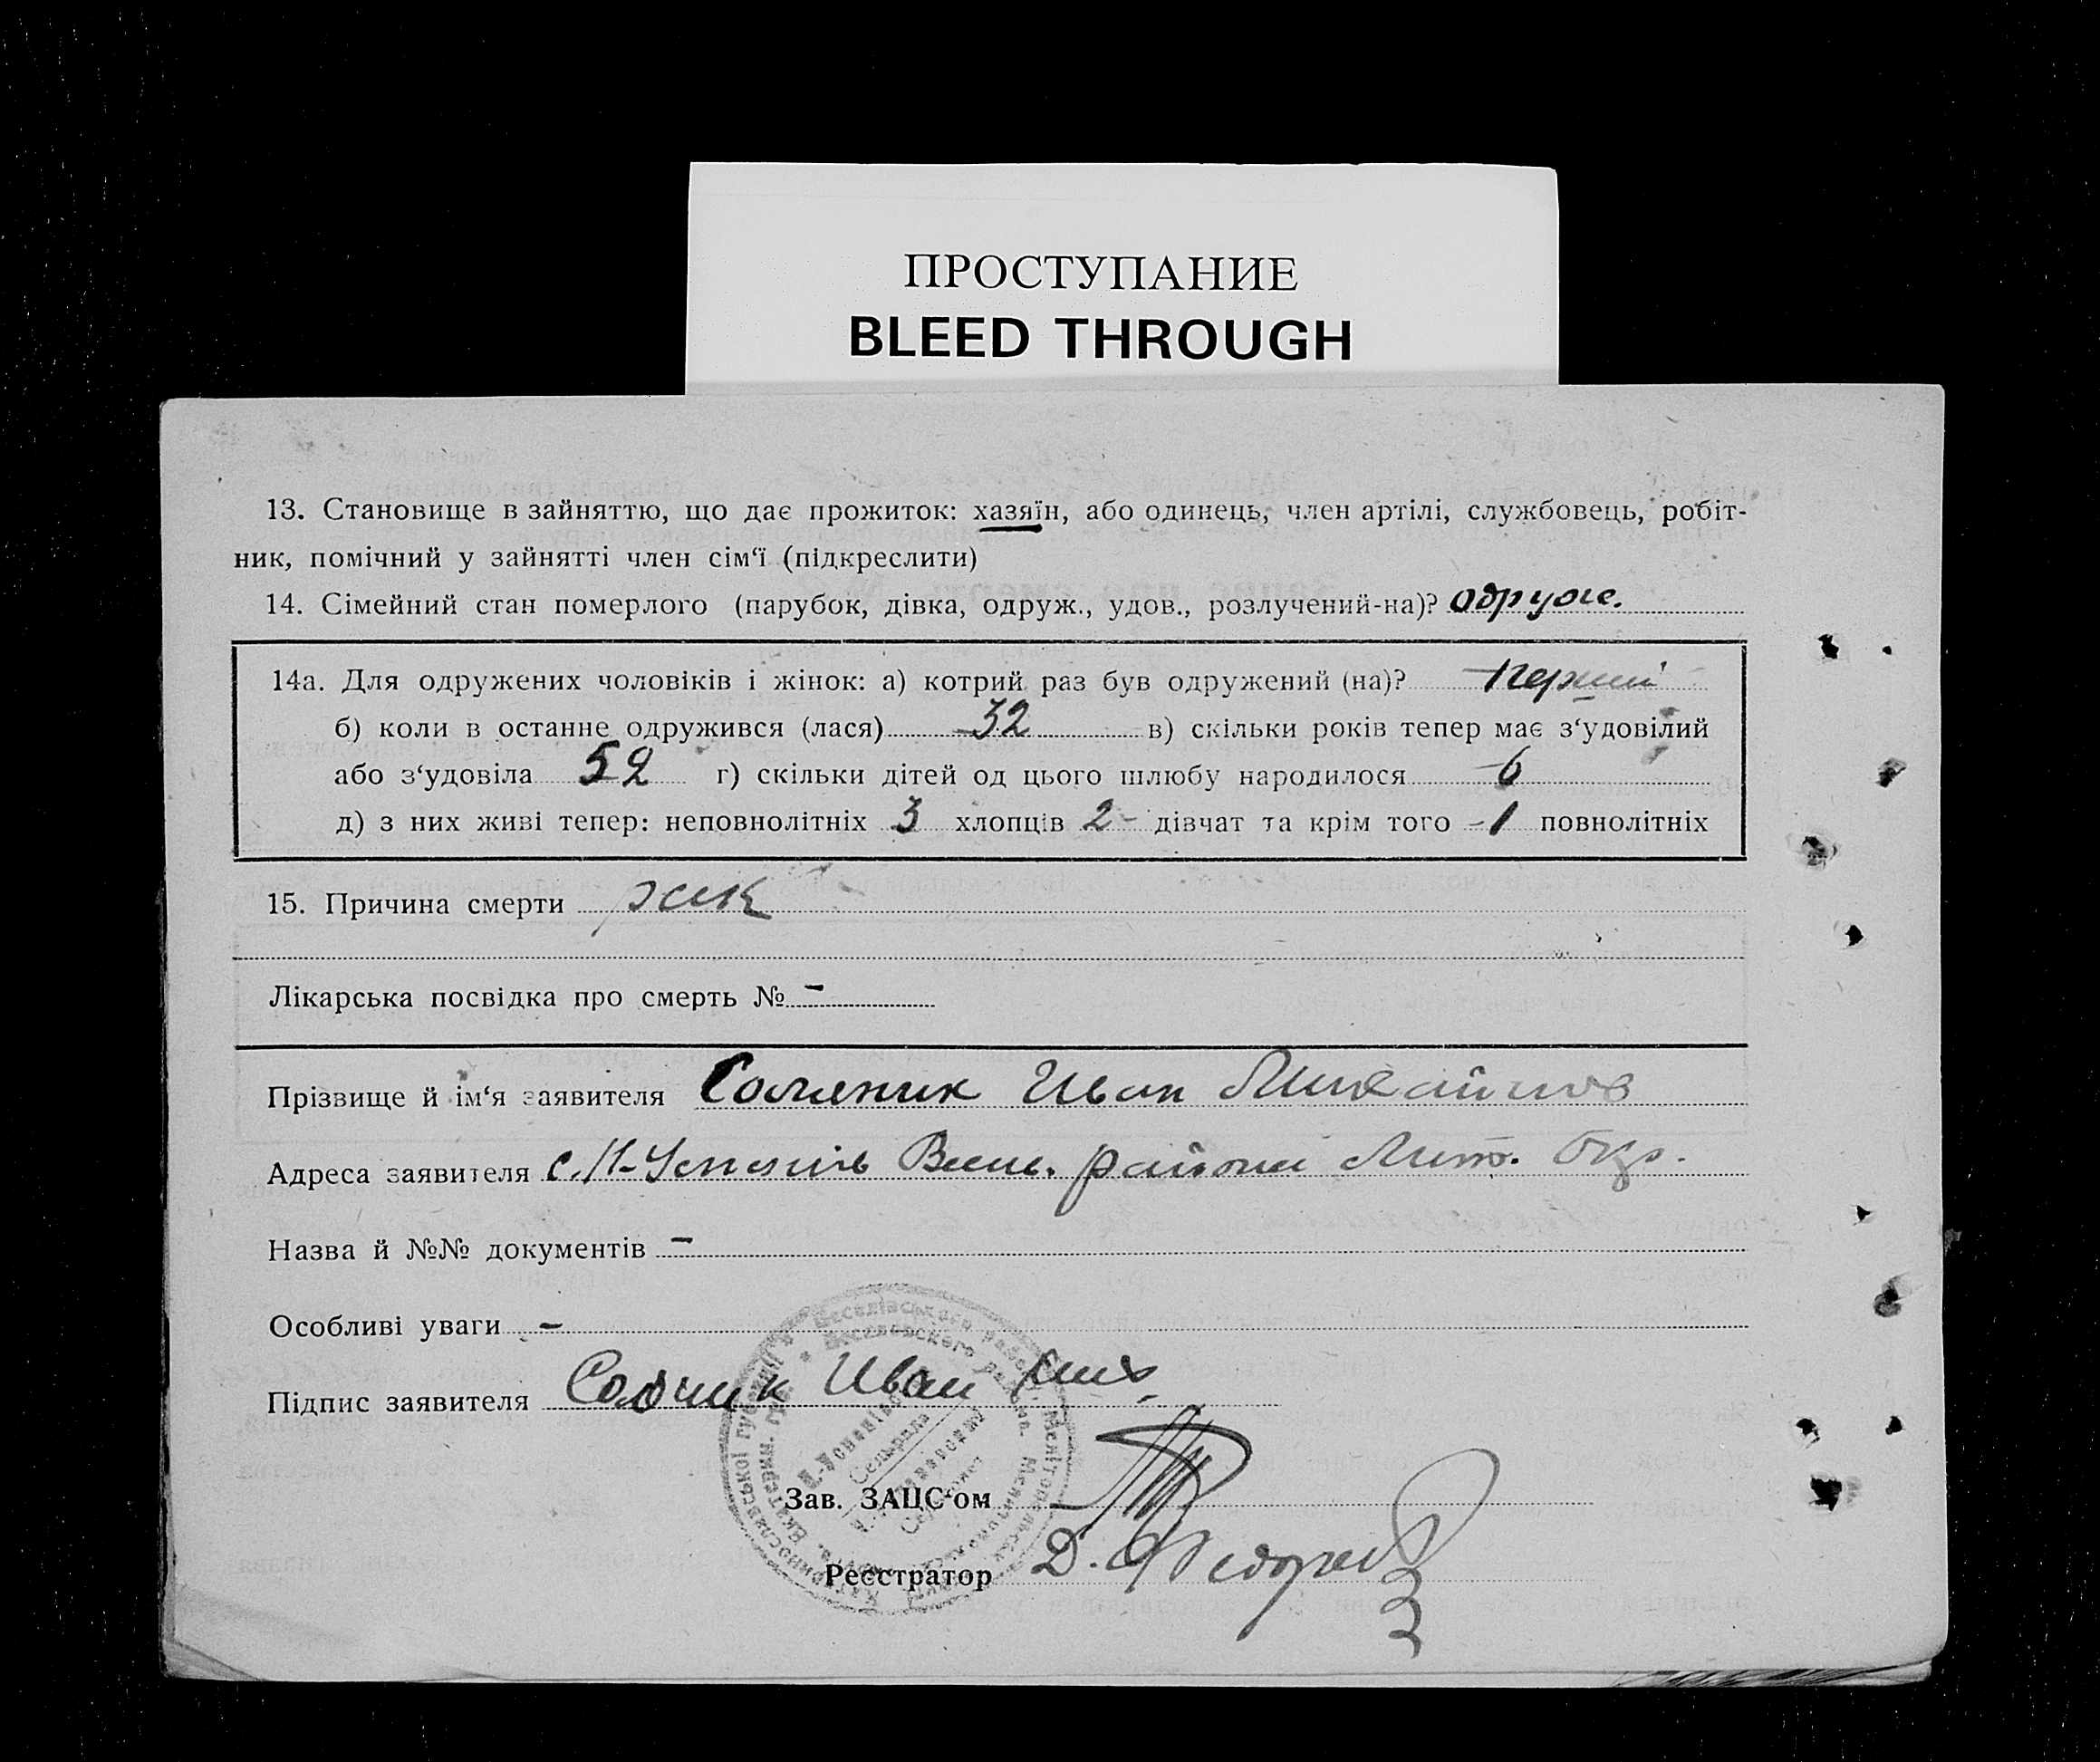 ПРОСТУПАНИЕ
BLEED THROUGH
13. Становище в зайняттю, що дає прожиток: хазяїн, або одинець, член артілі, службовець, робіт-
ник, помічний у зайнятті член сім‘ї (підкреслити)
14. Сімейний стан померлого (парубок, дівка, одруж., удов., розлучений-на)? одруже.
14а. Для одружених чоловіків і жінок: а) котрий раз був одружений (на)? перший
б) коли в останне одружився (лася) 32 в) скільки років тепер має з‘удовілий
або з‘удовіла 52 г) скільки дітей од цього шлюбу народилося 6
д) з них живі тепер: неповнолітніх 3 хлопців 2 - дівчат та крім того - 1 повнолітніх
15. Причина смерти рак
Лікарська посвідка про смерть № -
Прізвище й ім‘я заявителя Иван Михайлов
Адреса заявителя с. района Мит. Окр.
Назва й №№ документів -
Особливі уваги -
Підпис заявителя Иван Мих.
Зав. ЗАЦС‘ом
Реєстратор Д.